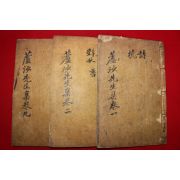 蘆沙先生集卷一
蘆沙先生集卷一
蘆沙先生集卷九